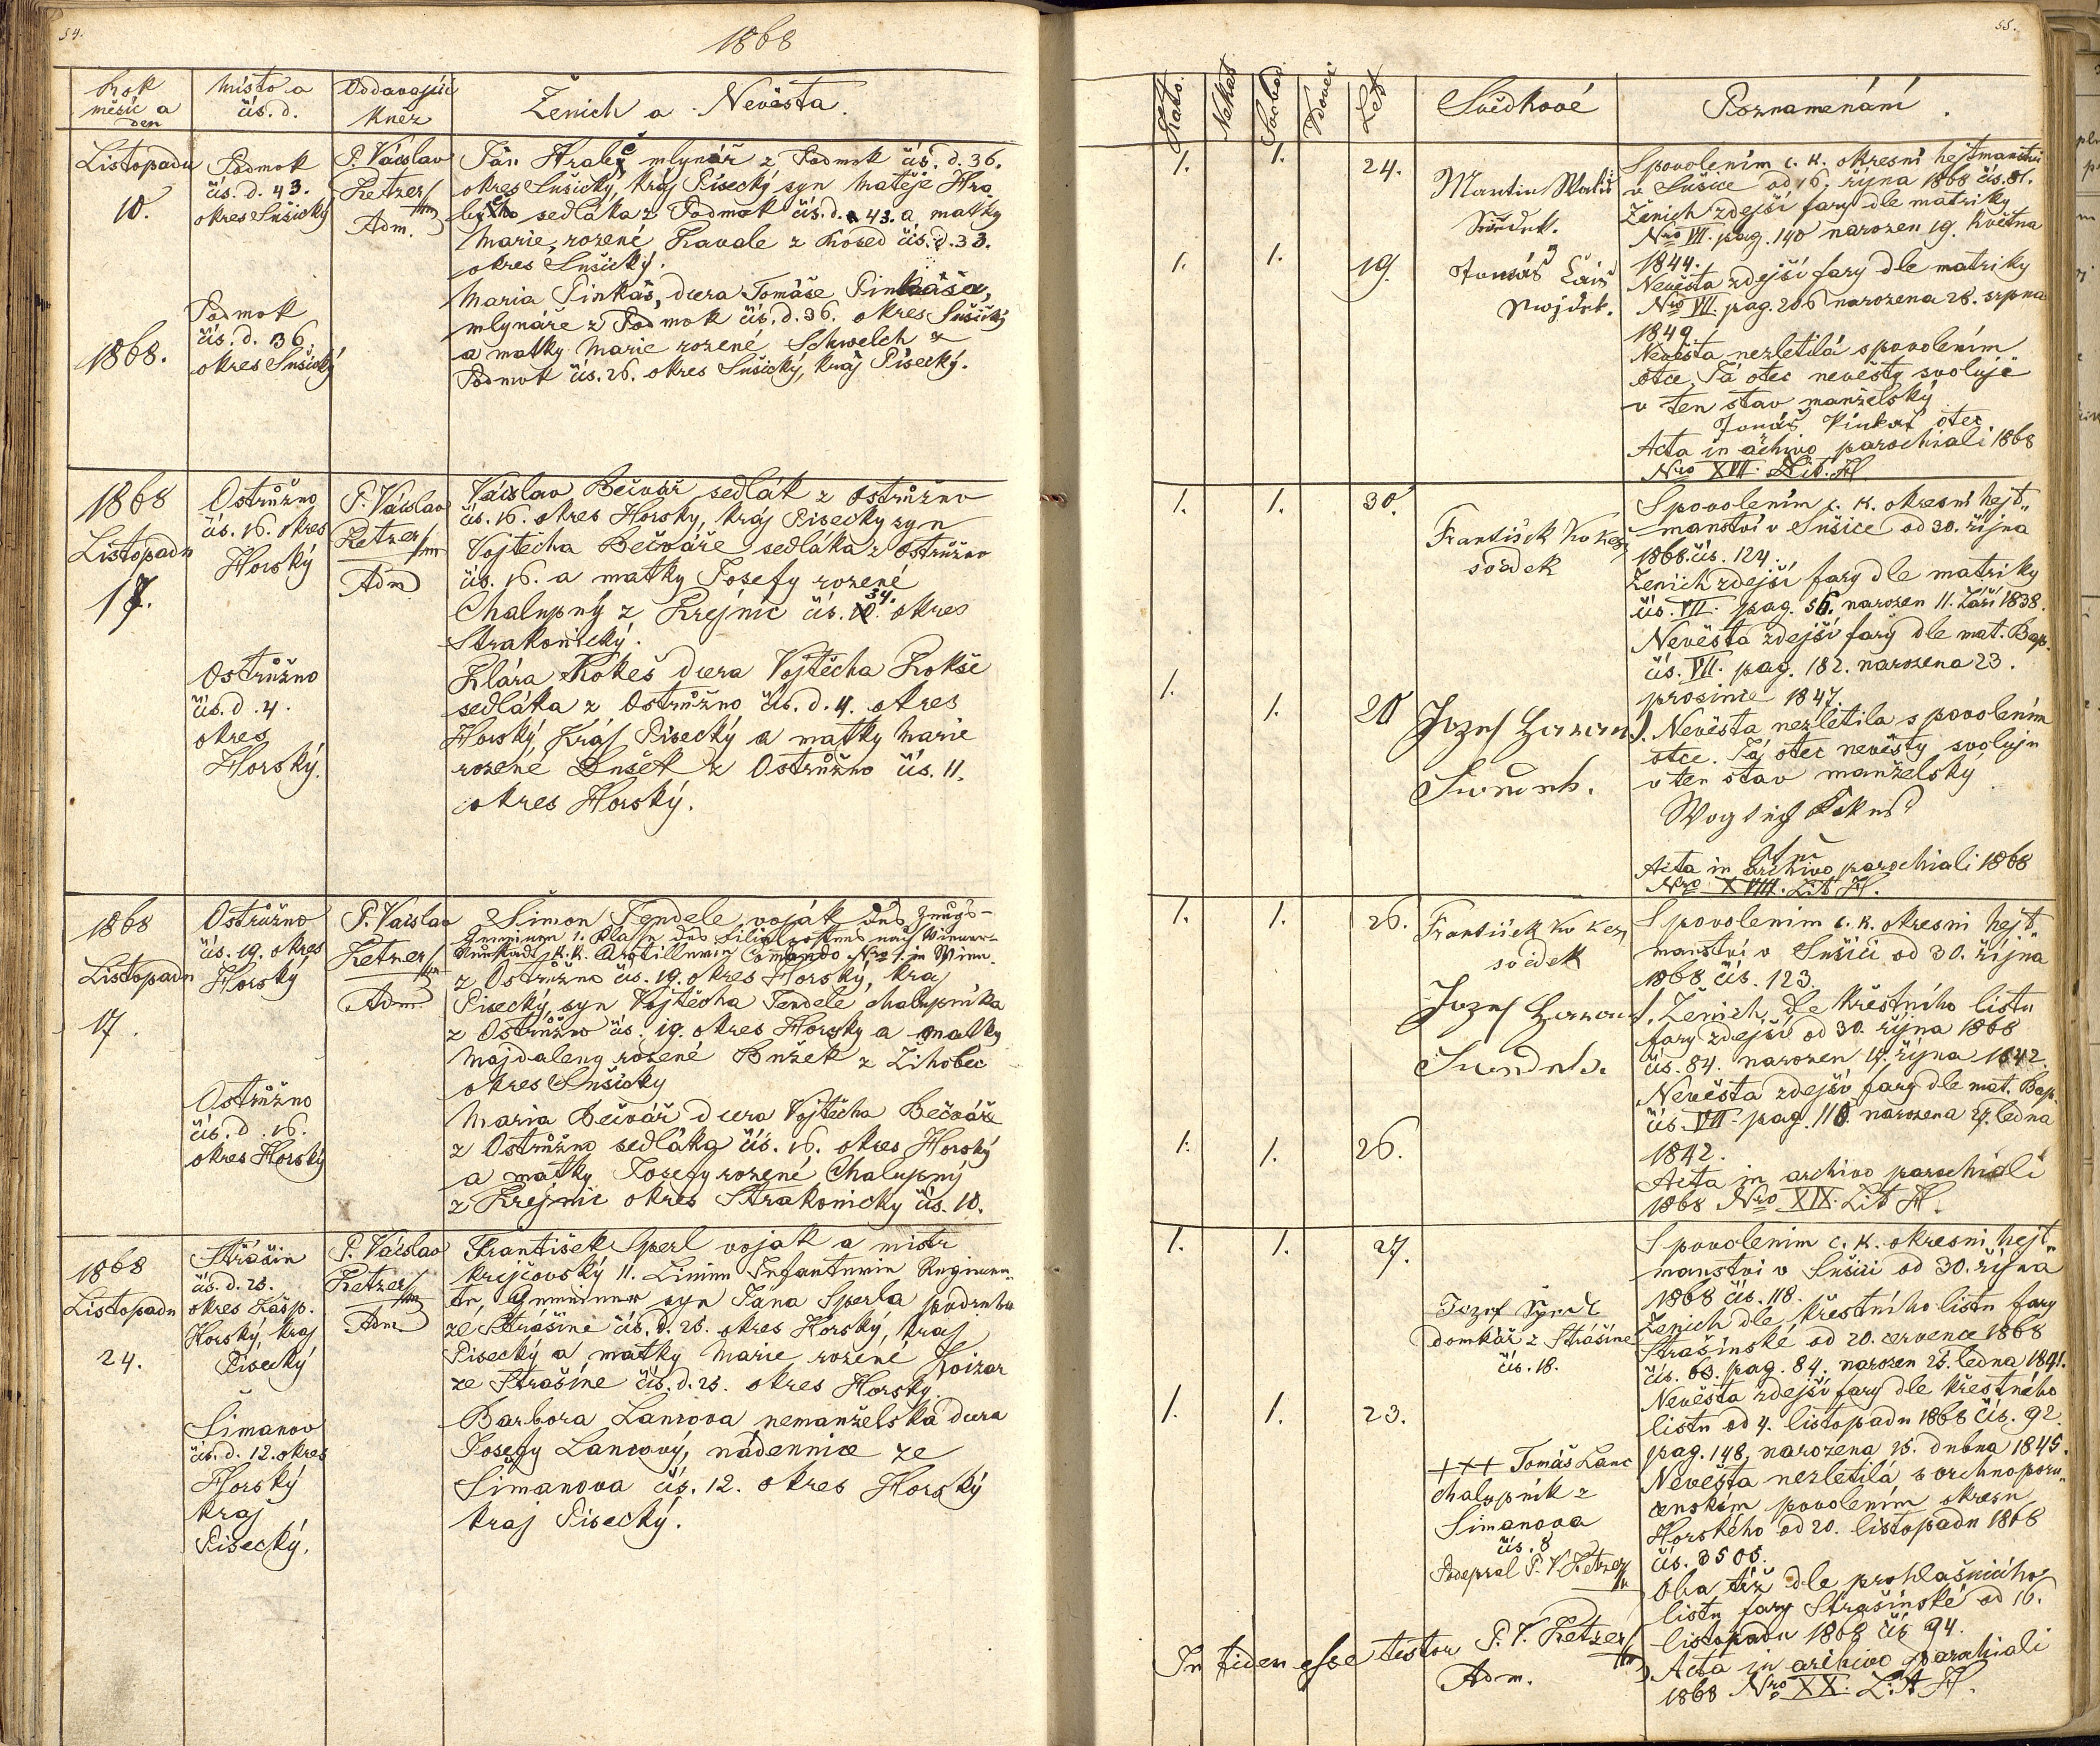 54.
1868
Rok
měsíc a
den
Místo a
čís. d.
Oddavající
Kněz
Ženich a Nevěsta.
Listopadu
10.
1868.
Podmok
čís. d. 43.
okres Sušický
Podmok
čís. d. 36.
okres Sušický
P. Václav
Ketzer
Adm.
Ján Hrabý mlynář z Podmok čís. d. 36.
okres Sušický, kráj Písecký syn Matěje Hra
sedláka z Podmok čís. d. 43. a matky
Marie, rozené Kavale z čís. d. 33.
okres Sušický.
Maria Pinkas, dcera Tomáše Pinkasa,
mlynáře z Podmok čís. d. 36. okres Sušický
a matky Marie rozené Schwelch z
Podmok čís. 26. okres Sušický, kráj Písecký.
1868
Listopadu
17.
Ostružno
čís. 16. okres
Horský
Ostružno
čís. d. 4.
okres
Horský.
P. Václav
Ketzer
Adm
Václav Bečvář sedlák z Ostružno
čís. 16. okres Horsky, kráj Pisecky syn
Vojtěcha Bečváře sedláka z Ostružno
čís. 16. a matky Josefy rozené
34.
Chalupný z Krejnic čís. 10. okres
Strakonický.
Klára Kokeš dcera Vojtěcha Kokše
sedláka z Ostružno čís. d. 4. okres
Horský, Kráj Pisecký a matky Marie
rozené Dušek z Ostružno čís. 11.
okres Horský.
1868
Listopadu
17.
Ostružno
čís. 19. okres
Horský
Ostružno
čís. d. 16.
okres Horský
P. Václav
Ketzer
Adm
Šimon Tendele voják des Zeugs-
Gemeiner 1. Klasse des Filial Postens nach Wiener-
Neustadt, K. K. Artillerie Comando Nro 1 in Wien.
z Ostružno čís. 19. okres Horský, kraj
Pisecký, syn Vojtěcha Tendele chalupníka
z Ostružno čís. 19. okres Horsky a matky
Majdaleny rozené Bužek z Žihobec
okres Sušicky
Maria Bečvář dcera Vojtěcha Bečváře
z Ostružno sedláka čís. 16. okres Horský
a matky Josefy rozené Chalupný
z Krejnic okres Strakonicky čís. 10.
1868
Listopadu
24.
Strašin
čís. d. 25.
okres Kašp.
Horský, kraj
Pisecký
Šimanov
čís. d. 12. okres
Horský
kraj
Pisecký.
P. Václav
Ketzer
Adm
František Sperl voják a mistr
krejčovský 11. Linien Infanterie Regimen-
te, Gemeiner syn Jana Sperla podruha
ze Strašíně čís. d. 25. okres Horský, kraj
Pisecký a matky Marie rozené
ze Strašíně čís. d. 25. okres Horsky.
Barbora Lancova nemanželská dcera
Josefy Lancový, nádennice ze
Simanova čís. 12. okres Horský
kraj Pisecký.
55.
Kato.
Nekat
Svobod.
Vdovec
Let
Svědkové
Poznamenání.
1. 1. 24.
1. 1. 19.
Martin
Svědek.
Tomáš
Svojdek.
S povolením c. k. okresní hejtmanství
v Sušice od 16. října 1868 čís. 81.
Ženich zdejší fary dle matriky
Nro VII. pag. 140 narozen 19. Května
1844.
Nevěsta zdejší fary dle matriky
Nro VII. pag. 206 narozena 28. srpna
1849.
Nevěsta nezletilá s povolením
otce, Já otec nevěsty svoluje
v ten stav manželský
Tomáš Pinkas otec
Acta in achivo parochiali 1868
Nro XVII. Lit. H.
1. 1. 30.
1. 1. 20
František Kokeš
svědek
Jozef
S povolením c. k. okresní hejt-
manství v Sušice od 30. října
1868 čís. 124.
Ženich zdejší fary dle matriky
čís. VII. pag. 56. narozen 11. Září 1838.
Nevěsta zdejší fary dle mat. Bap.
čís. VII. pag. 182. narozena 23.
prosince 1847.
Nevěsta nezletila s povolením
otce. Já otec nevěsty svoluju
v ten stav manželský
Acta in archivo parochiali 1868
Nro XVIII. Lit H.
1. 1. 26.
1. 1. 26.
František Kokeš
svědek
Jozef
S povolenim c. k. okresni hejt-
manství v Sušici od 30. října
1868 čís. 123.
Ženich dle křestního listu
fary zdejší od 30. října 1868
čís. 84. narozen 17. října 1842.
Nevěsta zdejší fary dle mat. Bap.
čís. VII. pag. 110 narozena 27. ledna
1842.
Acta in archivo parochiali
1868 Nro XIX. Lit H.
1. 1. 27.
1. 1. 23.
Jozef
domkář z Strášíně
čís. 18.
+++ Tomáš Lanc
chalupník z
Simanova
čís. 8
Podepsal P. V. Ketzer
S povolenim c. k. okresni hejt-
manstvi v Sušici od 30. října
1868 čís. 118.
Ženich dle křestního listu fary
Strašinské od 20. července 1868
čís. 63. pag. 84. narozen 25. ledna 1841.
Nevěsta zdejší fary dle křestného
listu od 4. listopadu 1868 čís. 92.
pag. 148, narozena 25. dubna 1845.
Nevěsta nezletilá s vrchnoporu-
čenským povolením okresu
Horského od 20. listopadu 1868
čís. 3505.
Oba též dle prohlašního
listu fary Strašínské od 16.
listopadu 1868 čís 94.
Acta in archivo parochiali
1868 Nro XX. Lit H.
In fidem esse testor P. V. Ketzer
Adm.